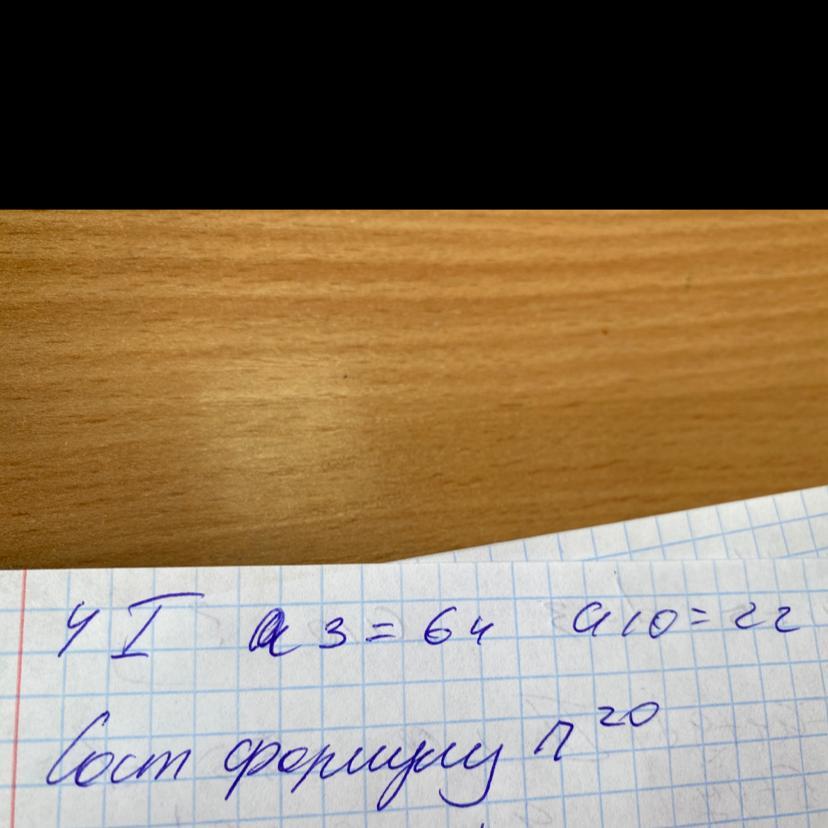 4 I а3 = 64 а10 = 22
Сост формулу n^20